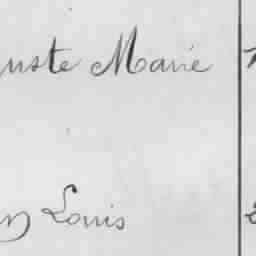 uste Marie
Louis